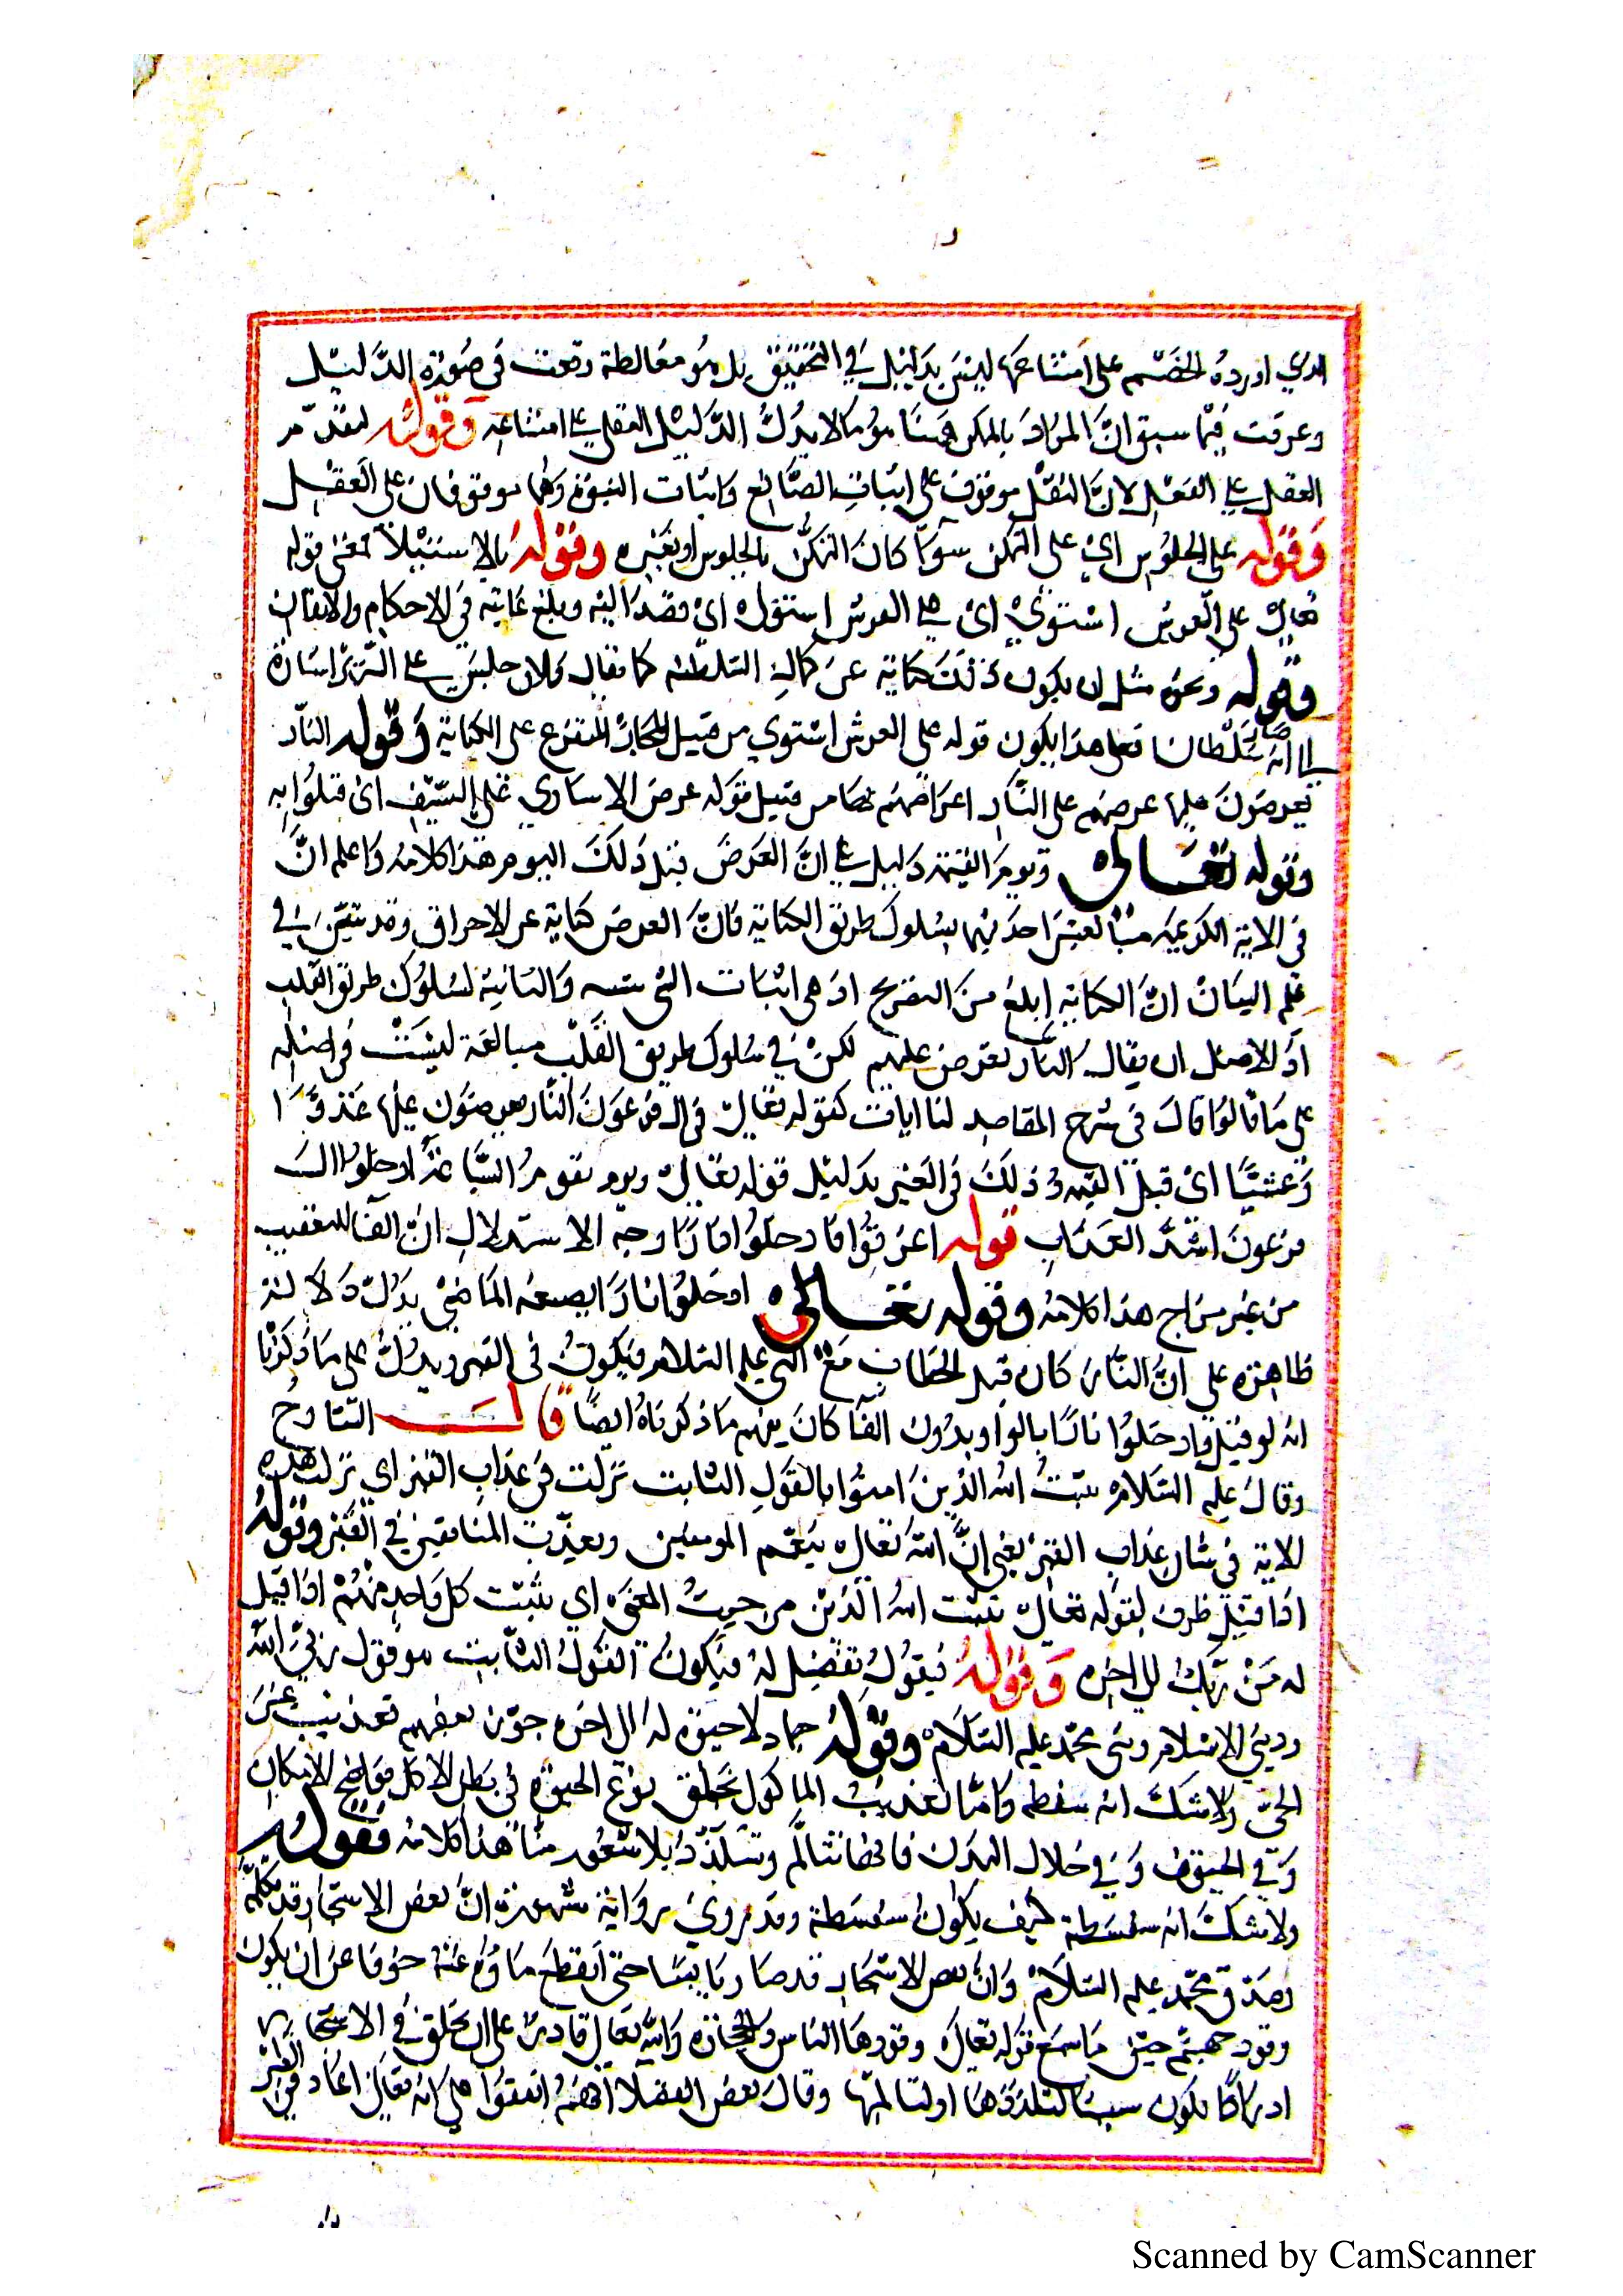 الذي اورده الخصم على امتناعها ليس بدليل في التحقيق بل هو مغالطة وقعت في صورة الدليل
وعرفت فيما سبق ان المراد بالممكن ههنا هو ما لا يدرك الدليل العقلي على امتناعه وقوله لتقدم
العقل على النقل لان النقل موقوف على اثبات الصانع واثبات النبوة وهما موقوفان على العقل
وقوله على الجلوس اي على التمكن سوآ كان التمكن بالجلوس او بغيره وقوله بالاستيلآ فمعنى قوله
تعالى على العرش استوي اي على العرش استولى اى قصد اليه وبلغ غايته في الاحكام والاتقان
وقوله ونحوه مثل ان يكون ذلك كناية عن كمال السلطنة كما يقال فلان جلس على السرير اشارة
الى انه صار سلطانا فعلى هذا يكون قوله على العرش استوي من قبيل المجاز المتفرع على الكناية وقوله النار
يعرضون عليها عرضهم على النار احراقهم بها من قبيل قوله عرض الاسارى على السيف اى قتلوا به
وقوله تعالى ويوم القيمة دليل على ان العرض قبل ذلك اليوم هذا كلامه واعلم ان
في الاية الكريمة مبالغتين احديهما بسلوك طريق الكناية فان العرض كناية عن الاحراق وقد تقرر في
علم البيان ان الكناية ابلغ من التصريح اذ هى اثبات الشئ ببينة والثانية لسلوك طريق القلب
اذ الاصل ان يقال النار تعرض عليهم لكن في سلوك طريق القلب مبالغة ليست في اصله
على ما قالوا قال في شرح المقاصد لنا ايات كقوله تعالى في ال فرعون النار يعرضون عليها غدوا
وعشيا اى قبل القيمة وذلك في القبر بدليل قوله تعالى ويوم تقوم الساعة ادخلوا ال
فرعون اشد العذاب قوله اغرقوا فادخلوا نارا وجه الاستدلال ان الفآ للتعقيب
من غير تراخ هذا كلامه وقوله تعالى ادخلوا نارا بصيغة الماضي يدل دلالة
ظاهرة على ان النار كان قبل الخطاب مع النبي عليه السلام فيكون في القبر ويدل على ما ذكرنا
انه لو قيل وادخلوا نارا بالواو بدون الفآ كان يفهم ما ذكرناه ايضا قال الشارح
وقال عليه السلام يثبت الله الذين امنوا بالقول الثابت نزلت في عذاب القبر اي نزلت هذه
الاية في شان عذاب القبر يعني ان الله تعالى ينعم المومنين ويعذب المنافقين في القبر وقوله
اذا قيل ظرف لقوله تعالى يثبت الله الذين من حيث المعنى اي يثبت كل واحد منهم اذا قيل
له من ربك الى اخره وقوله فيقول تفصيل له فيكون القول الثابت هو قول ربي الله
وديني الاسلام ونبي محمد عليه السلام وقوله جماد لا حيوة له الى اخره جوز بعضهم تعذيب غير
الحي ولا شك انه سفسطه واما تعذيب الماكول بخلق نوع الحيوة في بطن الاكل فواضح الامكان
وفي خلال البدن فانها تتالم وتتلذذ بلا شعور منا هذا كلامه فقوله
ولا شك انه سفسطة كيف يكون سفسطة وقد روي رواية مشهورة ان بعض الاشجار قد تكلم
وصدق محمد عليه السلام وان بعض الاشجار قد صار يابسا حتى انقطع مآوه عنه خوفا عن ان يكون
وقود جهنم حين ما سمع قوله تعالى وقودها الناس والحجارة والله تعالى قادر على ان يخلق في الاشجار
ادراكا يكون سببا لتلذذها او لتالمها وقال بعض الفضلا انهم اتفقوا على انه تعالى اعاد في القبر
Scanned by CamScanner